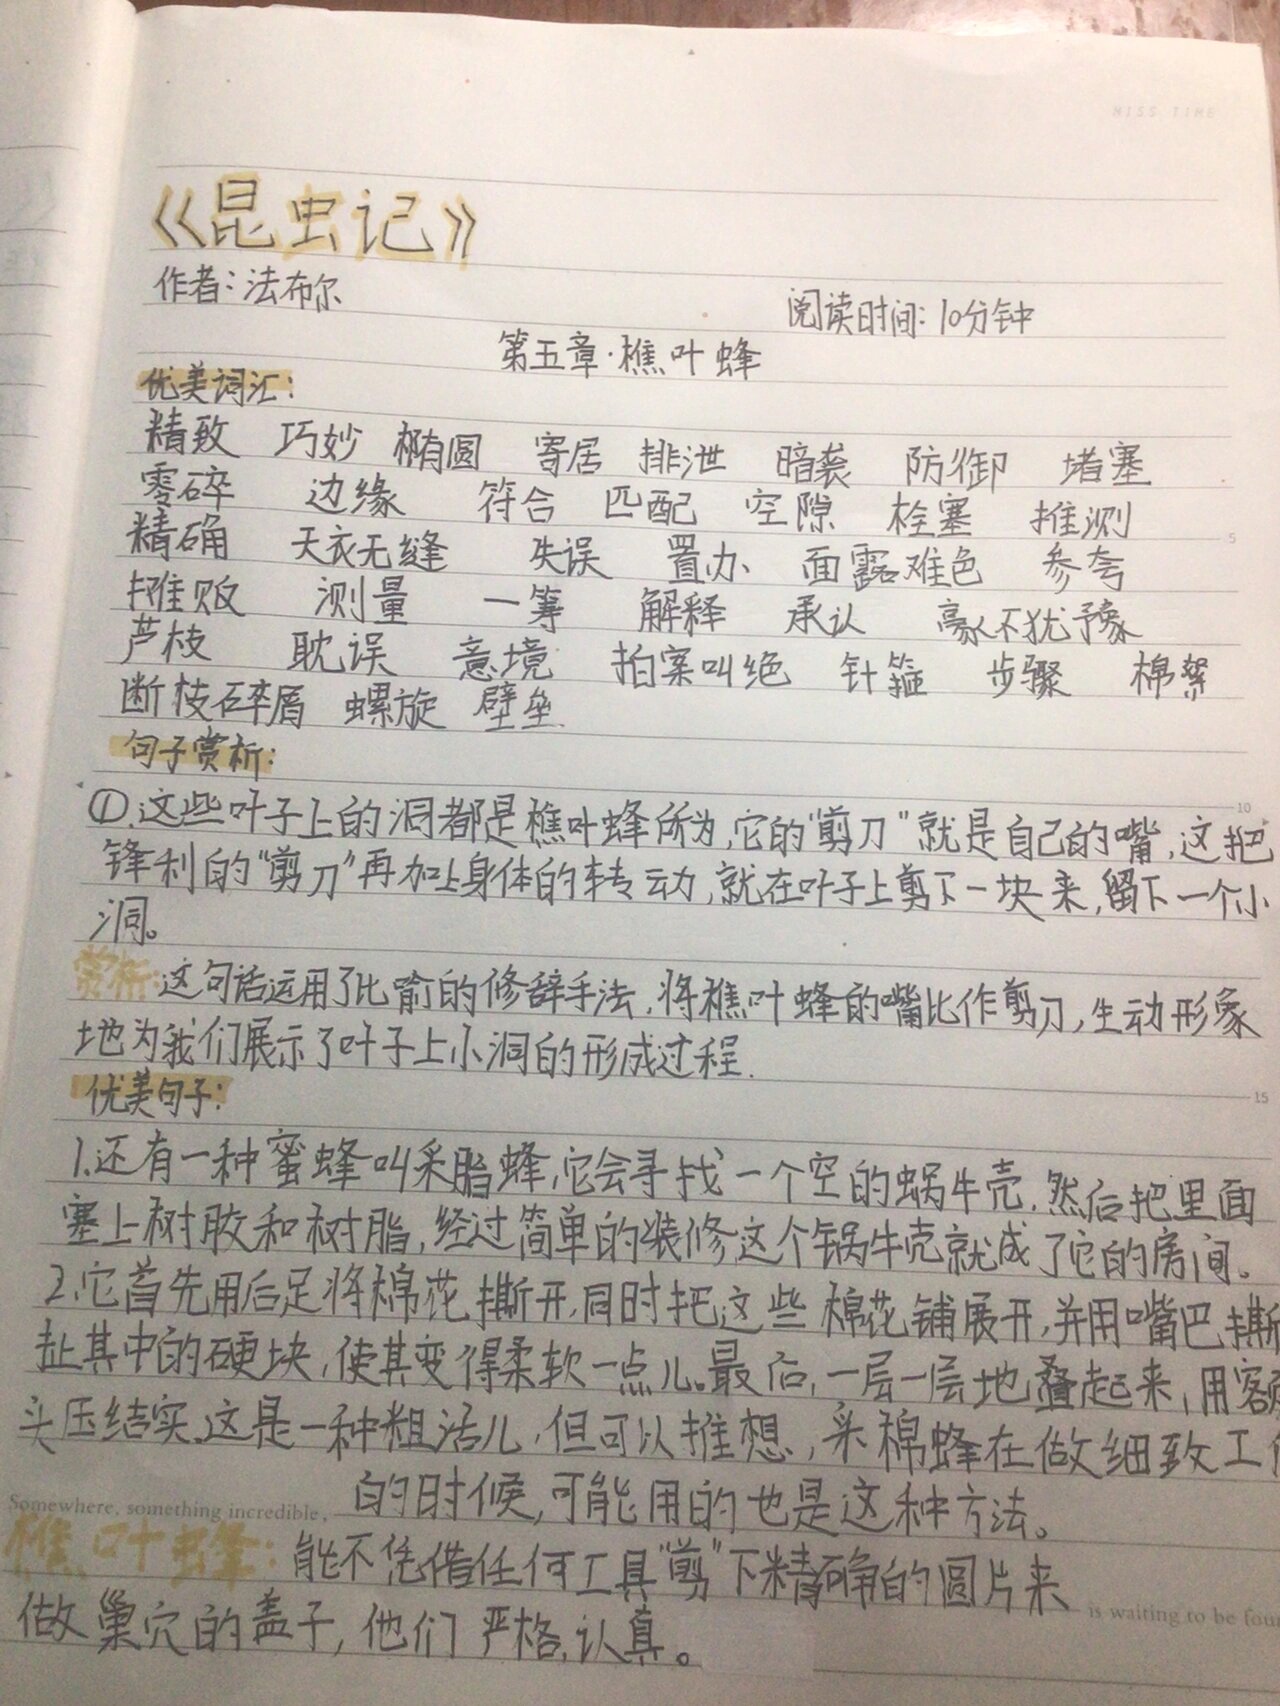 MISS TIME
《昆虫记》
作者：法布尔
阅读时间：10分钟
第五章·樵叶蜂
优美词汇：
精致 巧妙 椭圆 寄居 排泄 暗袭 防御 堵塞
零碎 边缘 符合 匹配 空隙 栓塞 推测
精确 天衣无缝 失误 置办 面露难色 参夸
推败 测量 一筹 解释 承认 豪不犹予豫
芦枝 耽误 意境 拍案叫绝 针箍 步骤 棉絮
断枝碎屑 螺旋 壁垒
句子赏析：
①.这些叶子上的洞都是樵叶蜂所为,它的"剪刀"就是自己的嘴,这把
锋利的"剪刀"再加上身体的转动,就在叶子上剪下一块来,留下一个小
洞。
赏析：这句话运用了比喻的修辞手法,将樵叶蜂的嘴比作剪刀,生动形象
地为我们展示了叶子上小洞的形成过程.
优美句子：
1.还有一种蜜蜂叫采脂蜂,它会寻找一个空的蜗牛壳.然后把里面
塞上树胶和树脂,经过简单的装修,这个锅牛壳就成了它的房间。
2.它首先用后足将棉花撕开,同时把这些棉花铺展开,并用嘴巴撕
扯其中的硬块,使其变得柔软一点儿。最后,一层一层地叠起来,用额
头压结实.这是一种粗活儿,但可以推想,采棉蜂在做细致工作
的时候,可能用的也是这种方法。
Somewhere, something incredible,
樵叶蜂：能不凭借任何工具"剪"下精确的圆片来
is waiting to be foun
做巢穴的盖子,他们严格,认真。
5
10
15